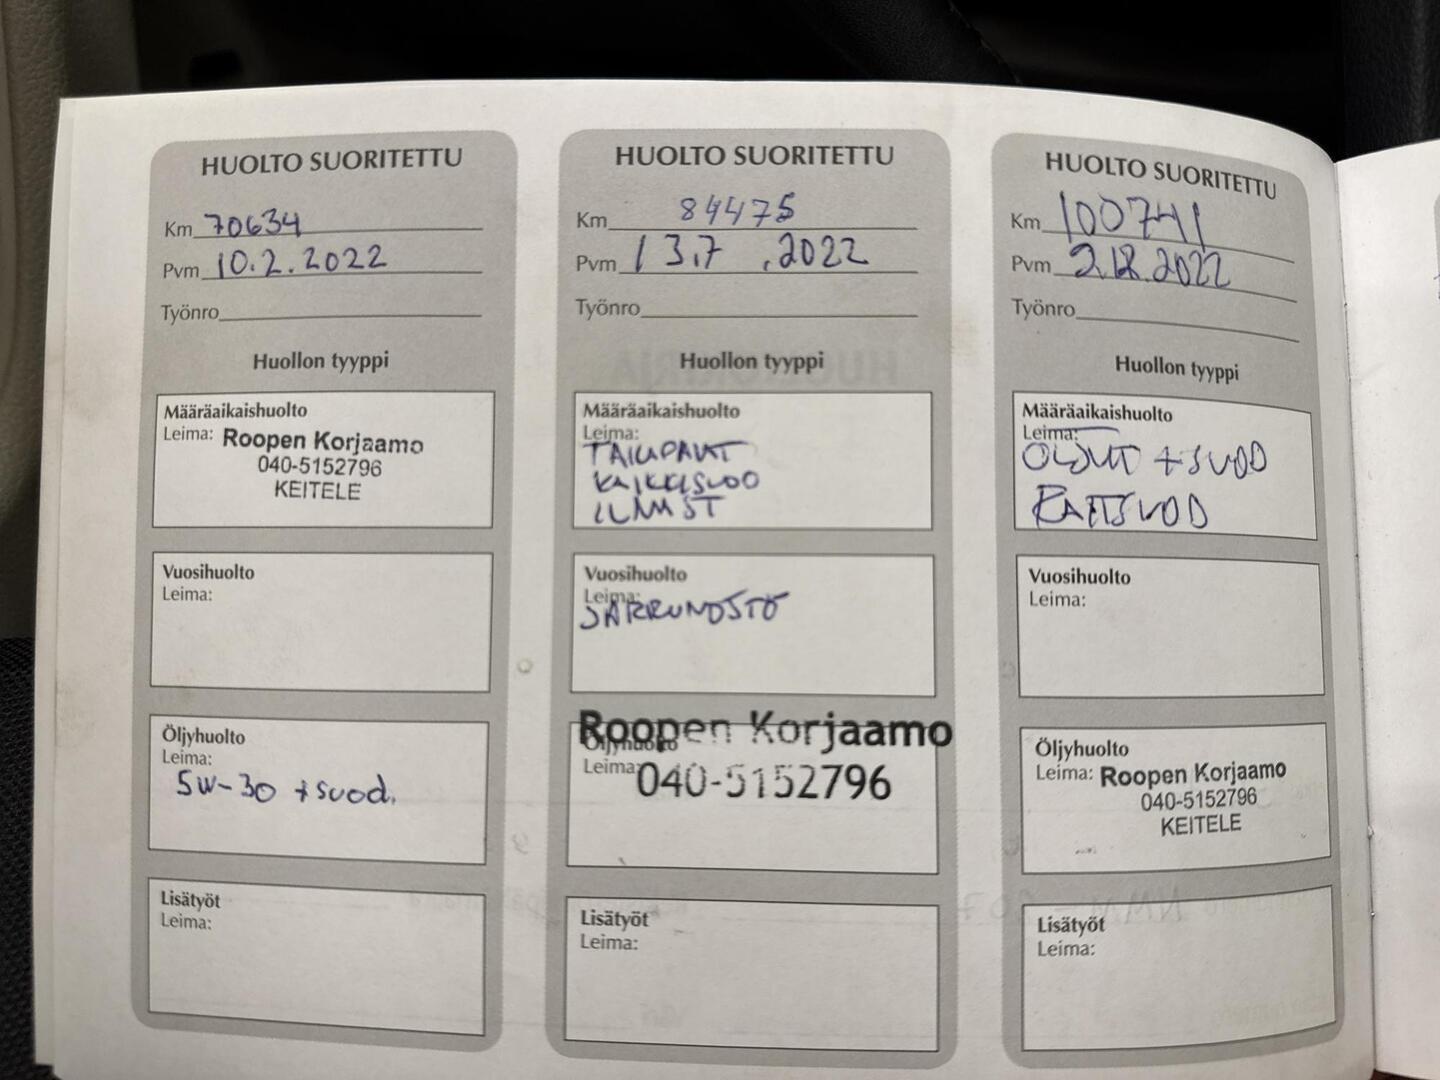 HUOLTO SUORITETTU
Km 70634
Pvm 10.2.2022
Työnro
Huollon tyyppi
Määräaikaishuolto
Leima: Roopen Korjaamo
040-5152796
KEITELE
Vuosihuolto
Leima:
Öljyhuolto
Leima:
5W-30 + suod.
Lisätyöt
Leima:
HUOLTO SUORITETTU
Km 84475
Pvm 13.7.2022
Työnro
Huollon tyyppi
Määräaikaishuolto
Leima:
KAIKKISUOD
ILMAST
Vuosihuolto
Leima:
JARRUNESTE
Roopen Korjaamo
Öljyhuolto
Leima:
040-5152796
Lisätyöt
Leima:
HUOLTO SUORITETTU
Km 100741
Pvm 2.12.2022
Työnro
Huollon tyyppi
Määräaikaishuolto
Leima:
ÖLJYT + SUOD
RAITISUOD
Vuosihuolto
Leima:
Öljyhuolto
Leima: Roopen Korjaamo
040-5152796
KEITELE
Lisätyöt
Leima: